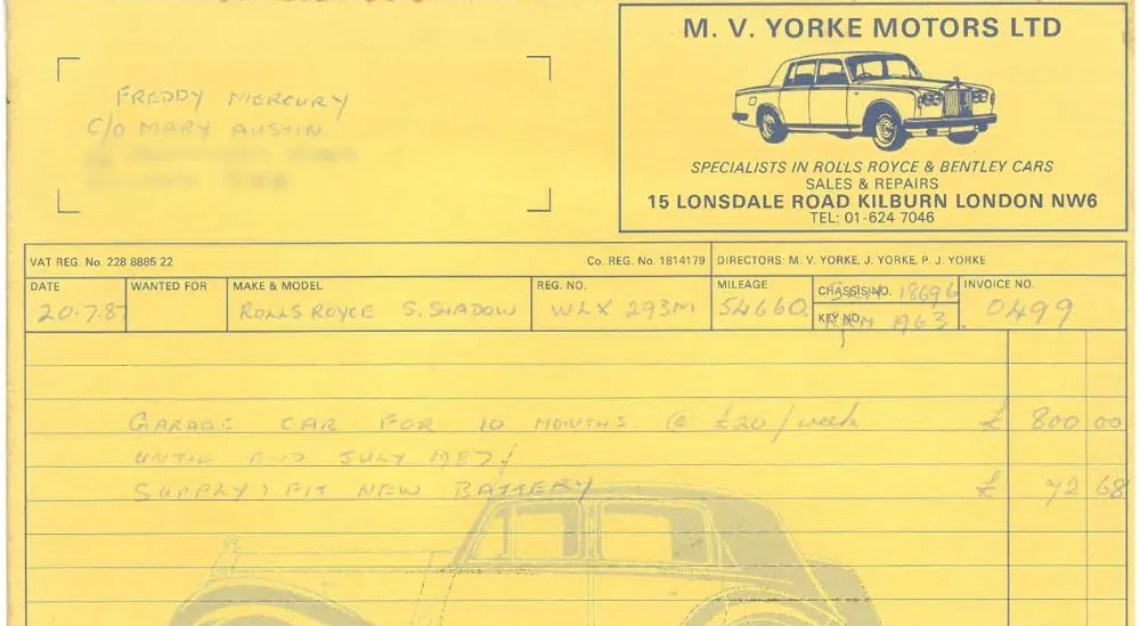 M. V. YORKE MOTORS LTD
SPECIALISTS IN ROLLS ROYCE & BENTLEY CARS
SALES & REPAIRS
15 LONSDALE ROAD KILBURN LONDON NW6
TEL: 01-624 7046
FREDDY MERCURY
C/O MARY AUSTIN
VAT REG. No. 228 8885 22 Co. REG. No. 1814179 DIRECTORS: M. V. YORKE, J. YORKE, P. J. YORKE
DATE WANTED FOR MAKE & MODEL REG. NO. MILEAGE CHASSIS NO. INVOICE NO.
20.7.87 ROLLS ROYCE S. SHADOW WLX 293M 54660. 18696 0499
KEY NO. 1963.
GARAGE CAR FOR 10 MONTHS @ £20/week £ 800 00
UNTIL END JULY 1987
SUPPLY & FIT NEW BATTERY £ 72 68